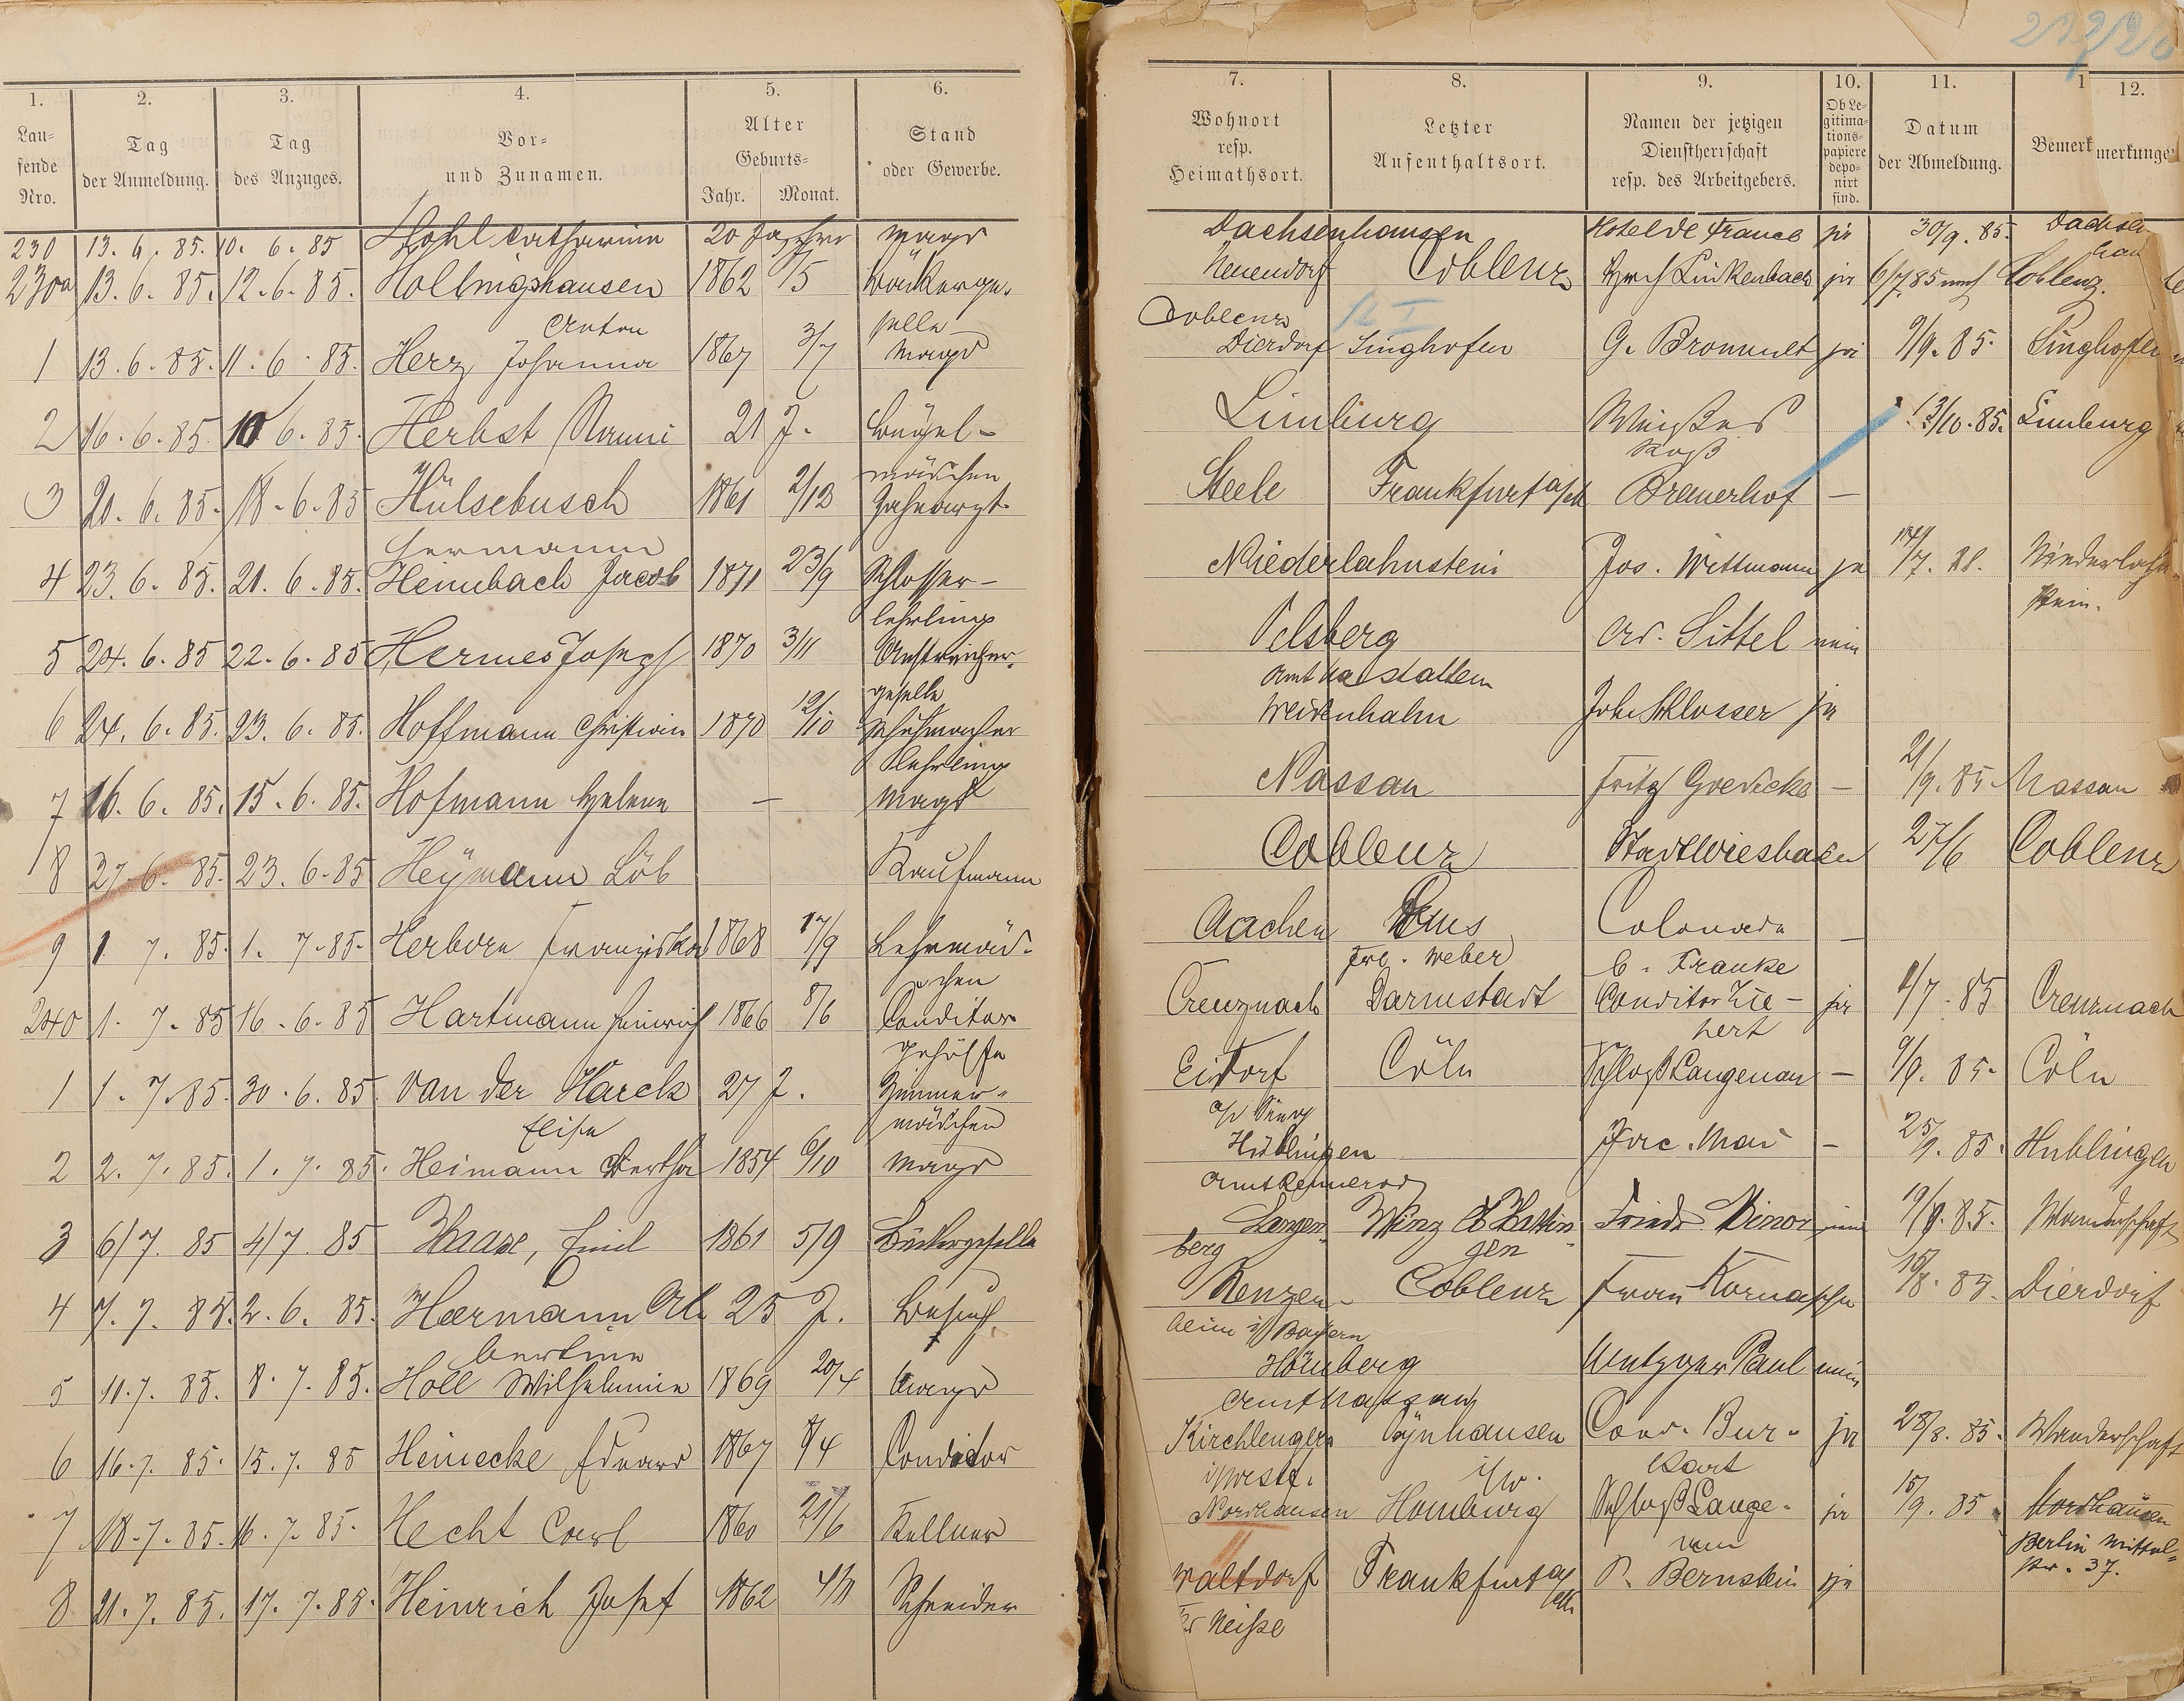 272/20
1. 2. 3. 4. 5. 6.
Lau=
sende
Nro.
Tag
der Anmeldung.
Tag
des Anzuges.
Vor=
und Zunamen.
Alter
Geburts=
Jahr. Monat.
Stand
oder Gewerbe.
7. 8. 9. 10. 11. 12.
Wohnort
resp.
Heimathsort.
Letzter
Aufenthaltsort.
Namen der jetzigen
Dienstherrschaft
resp. des Arbeitgebers.
Ob Le-
gitima-
tions-
papiere
depo-
nirt
sind.
Datum
der Abmeldung.
Bemerk
merkunge
230 13. 6. 85. 10. 6. 85 Hohl Catharina 20 Jahre Magd Dachsenhausen Hotel de France ja 30/9. 85. Dachsen
hau
230a 13. 6. 85. 12. 6. 85. Hollingshausen 1862 15 Bäckerge- Neuendorf Coblenz Hrch Linkenbach ja 6/7 85 nach Coblenz.
Anton selle Coblenz
1 13. 6. 85. 11. 6. 85. Herz Johanna 1867 3/7 Magd Dierdorf Singhofen G. Bronnult ja 9/9. 85. Singhofen
2 16. 6. 85. 10 6. 85. Herbst Nanni 21 J. Bügel- Limburg Weißes 13/10. 85. Limburg
mädchen Roß
3 21. 6. 85. 18. 6. 85 Hülsebusch 1861 2/12 Zahnarzt. Steele Frankfurt a/M Brauerhof —
Hermann
4 23. 6. 85. 21. 6. 85. Heimbach Jacob 1871 23/9 Schlosser- Niederlahnstein Jos. Wittmann ja 14/7. 88. Niederlahn-
lehrling stein.
5 24. 6. 85 22. 6. 85 Hermes Joseph 1870 3/11 Anstreicher- Pelsberg Ad. Sittel nein
geselle Amt Nastätten
6 24. 6. 85. 23. 6. 85. Hoffmann Christian 1870 12/10 Schuhmacher Weidenhahn Joh. Schlosser ja
lehrling
7 16. 6. 85. 15. 6. 85. Hofmann Helene — Magd Nassau Fritz Goedecke — 21/9. 85. Nassau
8 27. 6. 85. 23. 6. 85 Heymann Löb Kaufmann Coblenz Stadt Wiesbaden 27/6 Coblenz
9 1 7. 85. 1. 7. 85. Herborn Franziska 1868 17/9 Lehrmäd- Aachen Ems Colonade —
chen Frl. Weber C. Franke
240 1. 7. 85 16. 6. 85 Hartmann Heinrich 1866 8/6 Conditor Creuznach Darmstadt Conditor Zie- ja 1/7. 85 Creuznach
gehülfe hert
1 1. 7. 85. 30. 6. 85. van der Harck 27 J. Zimmer- Eitorf Cöln Schloß Langenau — 9/9. 85. Cöln
Elise mädchen a/d Sieg
2 2. 7. 85. 1. 7. 85. Heimann Bertha 1854 6/10 Magd Hüblingen Jac. Mai — 25/9. 85. Hüblingen
Amt Rennerod
3 6/7. 85 4/7. 85 Haase, Emil 1861 5/9 Bäckergeselle Langen- Winz b/Hattin- Friedr Minor nein 19/9. 85. Wanderschaft
berg gen
4 7. 7. 85. 2. 6. 85. Hermann Al- 25 J. Besuch. Renzen- Coblenz Frau 15/8. 85. Dierdorf
bertine heim i/ Bayern
5 11. 7. 85. 8. 7. 85. Holl Wilhelmine 1869 20/4 Magd Hömberg Metzger Paul nein
Amt Nassau
6 16. 7. 85. 15. 7. 85 Heinecke Eduard 1867 8/4 Conditor Kirchlengern Oynhausen Cond. Bur- ja 28/8. 85. Wanderschaft
i/Westf. i/W. kart
7 18. 7. 85. 16. 7. 85. Hecht Carl 1860 21/6 Kellner Nordhausen Homburg Schloß Lange- ja 15/9. 85. Nordhausen
nau Berlin Mittel-
str. 37.
8 21. 7. 85. 17. 7. 85. Heinrich Josef 1862 4/11 Schneider Waltdorf Frankfurt a/M P. Bernstein ja
Kr Neiße